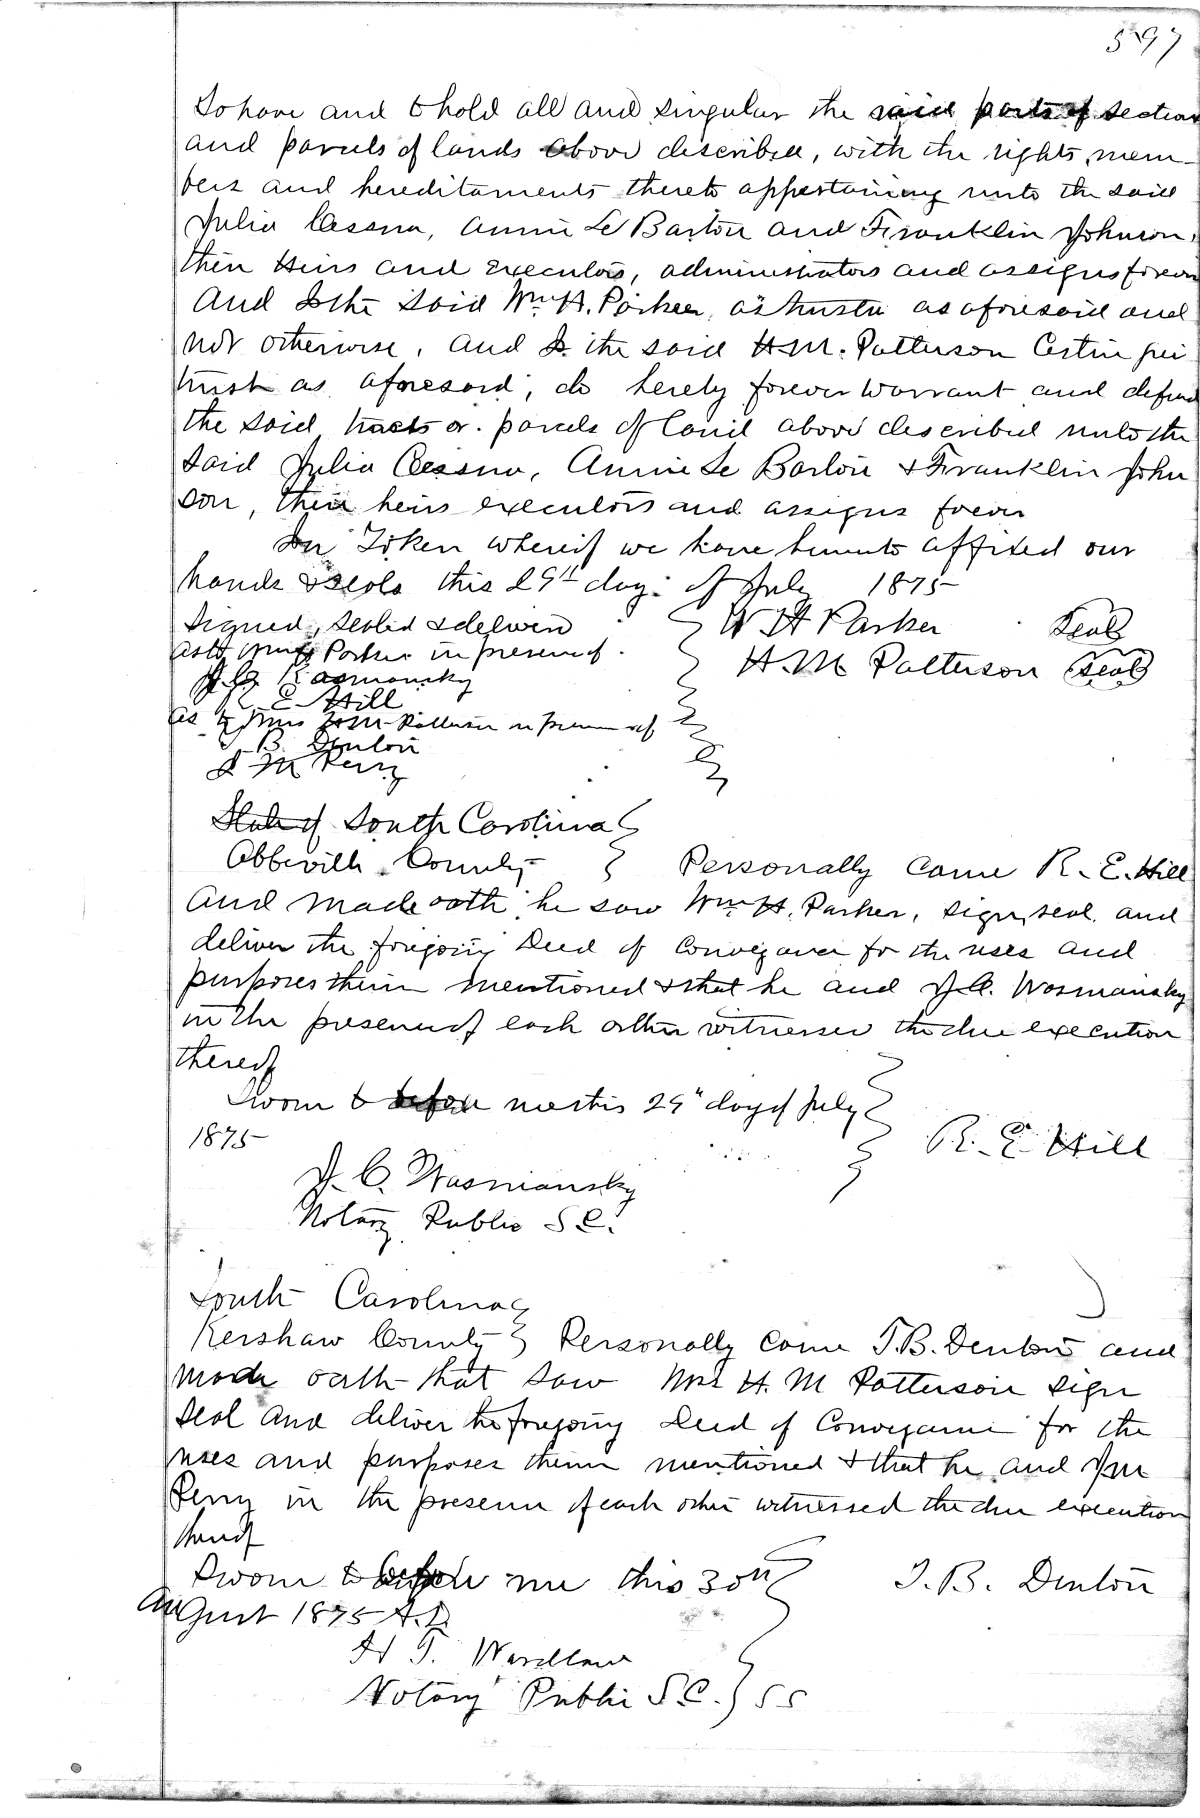 597
To have and to hold all and singular the said parts of section
and parcels of lands above described, with the rights, mem-
bers and hereditaments thereto appertaining unto the said
Julia Cessna, Annie Le Barton and Franklin Johnson,
their Heirs and executors, administrators and assigns forever
And I the said Wm H. Parker, as trustee as aforesaid and
not otherwise, and I the said H. M. Patterson Cestui que
trust as aforesaid, do hereby forever warrant and defend
the said tracts or parcels of land above described unto the
said Julia Cessna, Annie Le Barton & Franklin John
son, their heirs executors and assigns forever
In Token whereof we have hereunto affixed our
hands & seals this 29th day of July 1875
Signed, sealed & delivered
W H Parker Seal
as to Wm H Parker in presence of
H. M Patterson Seal
J. C. Wosmansky
R E Hill
as to Mrs H M Patterson in presence of
T B. Denton
J M Perry
State of South Carolina
Abbeville County Personally came R. E. Hill
and made oath he saw Wm H. Parker, sign, seal and
deliver the foregoing Deed of Conveyance for the uses and
purposes therein mentioned & that he and J. C. Wosmansky
in the presence of each other witnessed the due execution
thereof
Sworn to before me this 29" day of July
1875
R. E Hill
J. C. Wosmansky
Notary Public S C.
South Carolina
Kershaw County Personally came T. B. Denton and
made oath that saw Mrs H. M Patterson sign
seal and deliver the foregoing Deed of Conveyance for the
uses and purposes therein mentioned & that he and J M
Perry in the presence of each other witnessed the due execution
thereof
Sworn to before me this 30th T. B. Denton
August 1875 A. D
H T. Wardlaw
Notary Public S. C. SS